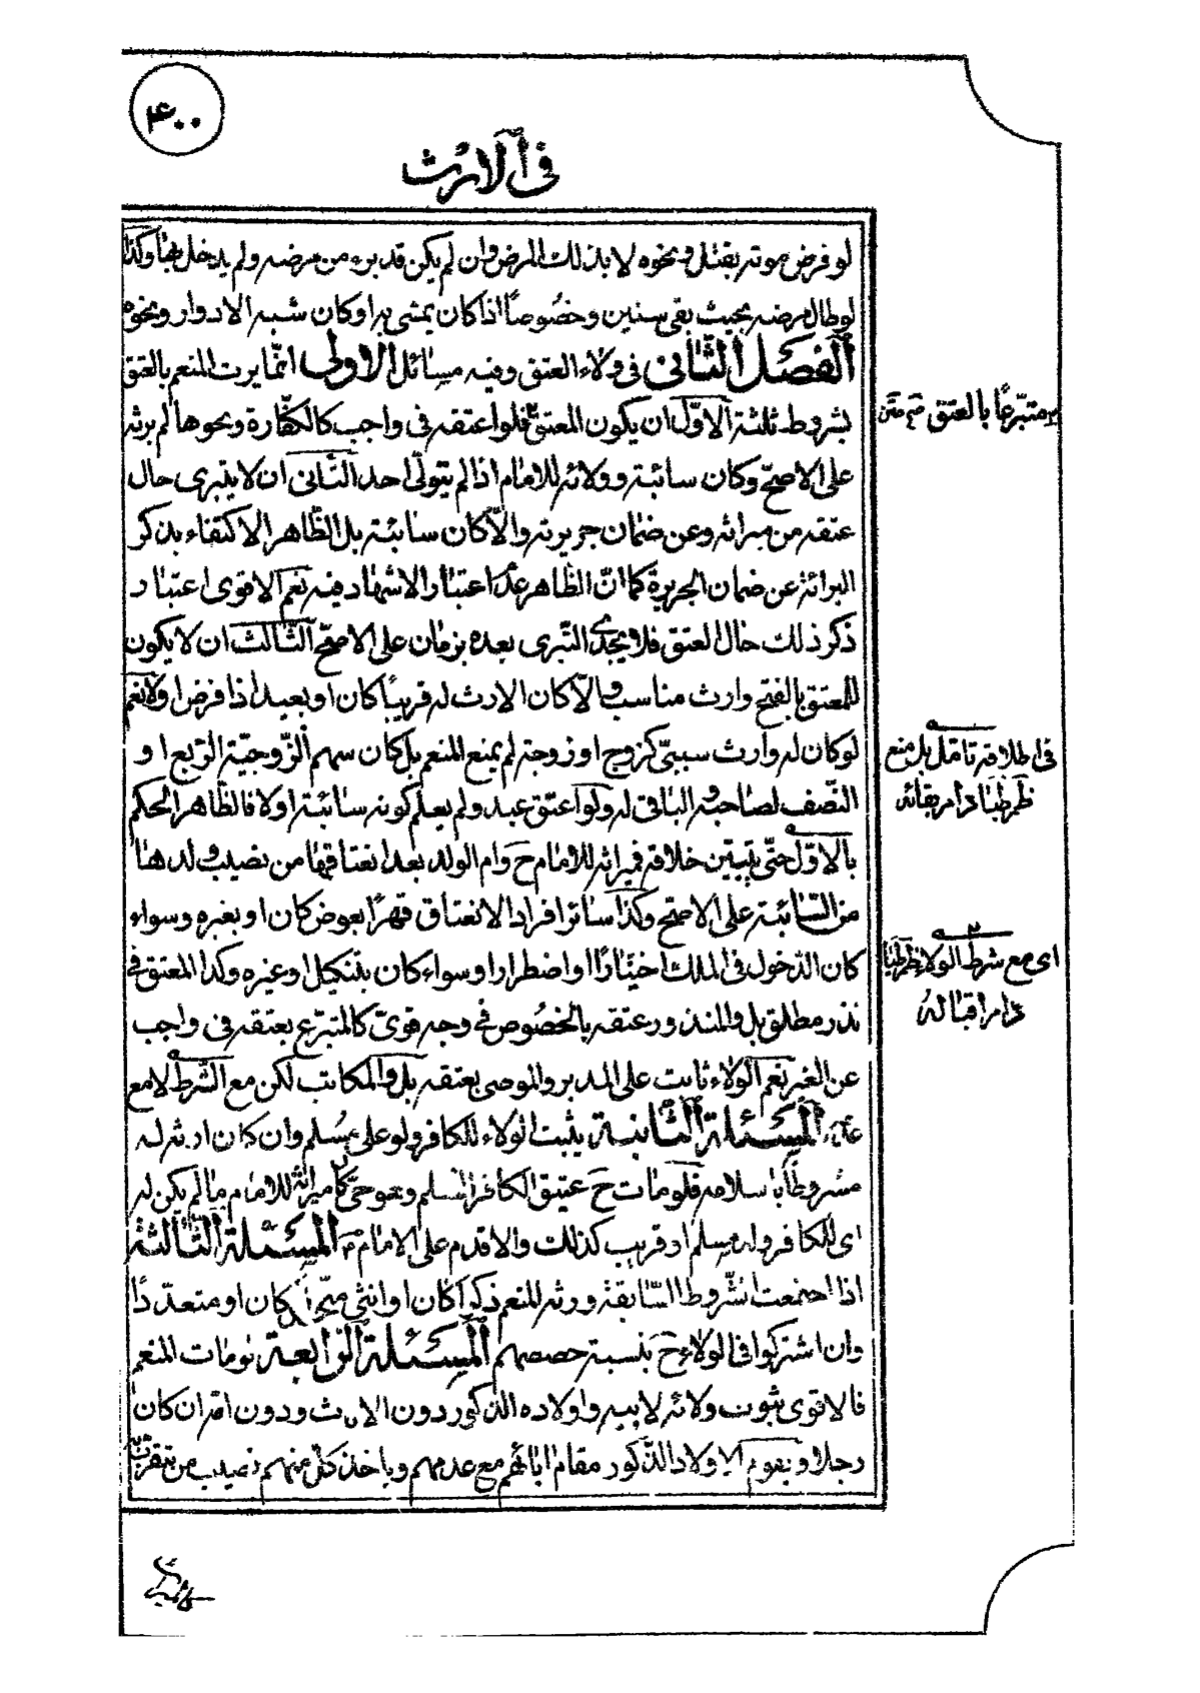 ۴۰۰
فی الارث
لو فرض موته بقتل و نحوه لا بذلك المرض وان لم يكن قد برء من مرضه ولم يدخل بها وكذا
لو طال مرضه بحيث بقى سنين وخصُوصًا اذا كان يمشى به او كان شبه الادوار ونحوه
الفصَل الثّانى فى ولاء العتق وفيه مسائل الاولى انّما يرث المنعم بالعتق
بشروط ثلثة الاوّل ان يكون المعتق فلو اعتقه فى واجب كالكفّارة ونحوها لم يرثه
على الاصحّ وكان سائبة وولائه للامام اذا لم يتولّى احد الثّانى ان لا يتبرى حال
عتقه من ميراثه وعن ضمان جريرته والّا كان سائبة بل الظّاهر الاكتفاء بذكر
البرائة عن ضمان الجريرة كما انّ الظّاهر عدم اعتبار الاشهاد فيه نعم الاقوى اعتبار
ذكر ذلك حال العتق فلا يجدى التّبرى بعده بزمان على الاصحّ الثّالث ان لا يكون
للمعتق بالفتح وارث مناسب والّا كان الارث له قريبًا كان او بعيدا اذا فرض او لا نعم
لو كان له وارث سببىّ كزوج او زوجة لم يمنع المنعم بل كان سهم الزّوجيّة الرّبع او
النّصف لصاحبه والباقى له ولو اعتق عبد ولم يعلم كونه سائبة او لا فالظّاهر الحكم
بالاوّل حتّى يتبيّن خلافه فميراثه للامام ح وام الولد بعد انعتاقها من نصيب ولدها
من السّائبة على الاصحّ وكذا سائر افراد الانعتاق قهرًا بعوض كان او بغيره وسواء
كان الدّخول فى الملك اختيارًا او اضطرارا وسواء كان بتنكيل او غيره وكذا المعتق فى
نذر مطلق بل والمنذور عتقه بالخصُوص فى وجه قوىّ كالمتبرّع بعتقه فى واجب
عن الغير نعم الولاء ثابت على المدبر والموصى بعتقه بل والمكاتب لكن مع الشّرط لا مع
عدمه المَسئلة الثّانية يثبت الولاء للكافر ولو على مُسلم وان كان ارثه له
مشروطًا باسلامه فلو مات ح عتيق الكافر المسلم وهو حىّ كان ميراثه للامام ما لم يكن له
اى للكافر ولد مسلم او قريب كذلك والا قدم على الامام المَسئلة الثّالثة
اذا اجتمعت الشّروط السّابقة ورثه المنعم ذكرا كان او انثى متّحدا كان او متعدّدًا
وان اشتركوا فى الولاء ح بنسبة حصصهم المَسئلة الرّابعة لو مات المنعم
فالاقوى ثبوت ولائه لابيه واولاده الذّكور دون الاناث ودون امّه ان كان
رجلا ويقوم الاولاد الذّكور مقام ابائهم مع عدمهم وياخذ كلّ منهم نصيب من يتقرّب
متبرّعًا بالعتق
فى اطلاقه تامّل بل منع
ظم طبا دام بقائه
اى مع شرط الولاء ظم طبا
دام اقباله